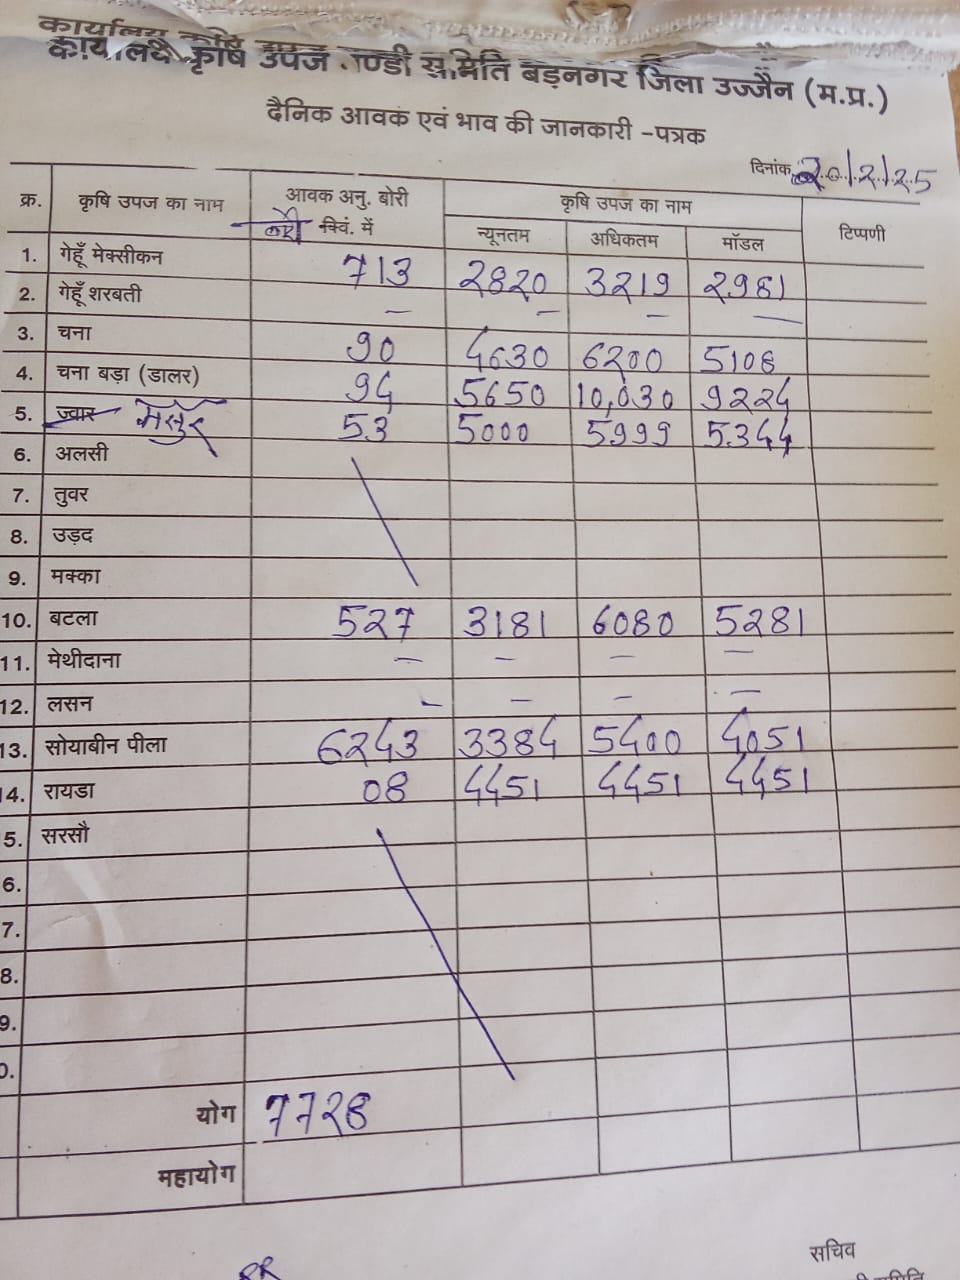 कार्यालय कृषि उपज
कार्यालय कृषि उपज मण्डी समिति बड़नगर जिला उज्जैन (म.प्र.)
दैनिक आवक एवं भाव की जानकारी -पत्रक
दिनांक 20/2/25
क्र. कृषि उपज का नाम आवक अनु. बोरी क्विं. में कृषि उपज का नाम टिप्पणी
न्यूनतम अधिकतम मॉडल
1. गेहूँ मेक्सीकन 713 2820 3219 2981
2. गेहूँ शरबती — — — —
3. चना 90 4630 6200 5106
4. चना बड़ा (डालर) 94 5650 10,030 9224
5. ज्वार मसुर 53 5000 5999 5344
6. अलसी
7. तुवर
8. उड़द
9. मक्का
10. बटला 527 3181 6080 5281
11. मेथीदाना — — — —
12. लसन — — — —
13. सोयाबीन पीला 6243 3384 5400 4051
14. रायडा 08 4451 4451 4451
5. सरसौ
6.
7.
8.
9.
0.
योग 7728
महायोग
सचिव